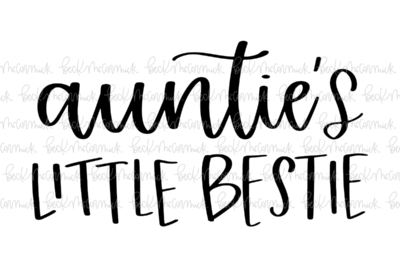 auntie's
LITTLE BESTIE